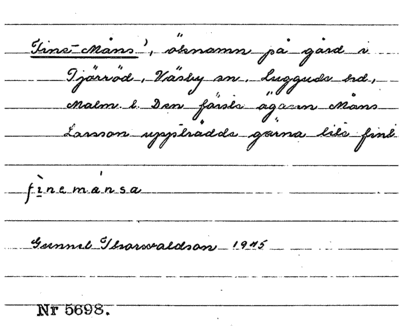 "Fine-Måns", öknamn på gård i
Tjärröd, Väsby sn, Luggude hd,
Malm. l. Den förste ägaren Måns
Larsson uppträdde gärna lite fint.
fìnemánsa
Gunnel Thorwaldson 1945
Nr 5698.